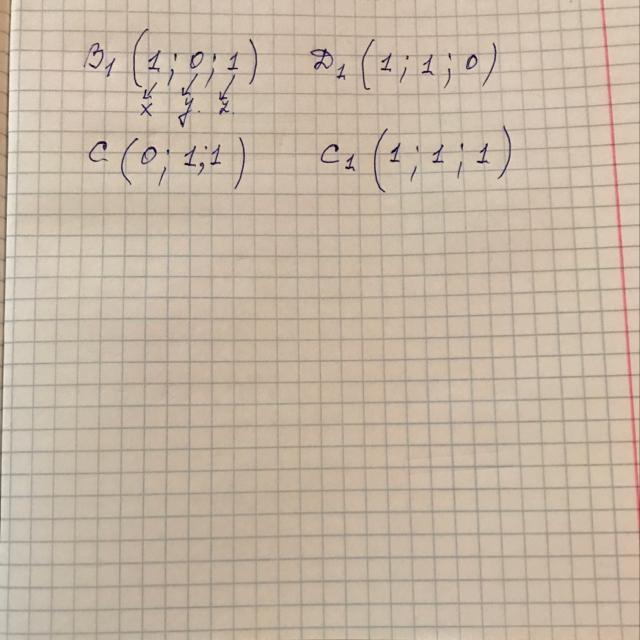 B₁ (1; 0; 1) D₁ (1; 1; 0)
x y z
C (0; 1; 1) C₁ (1; 1; 1)